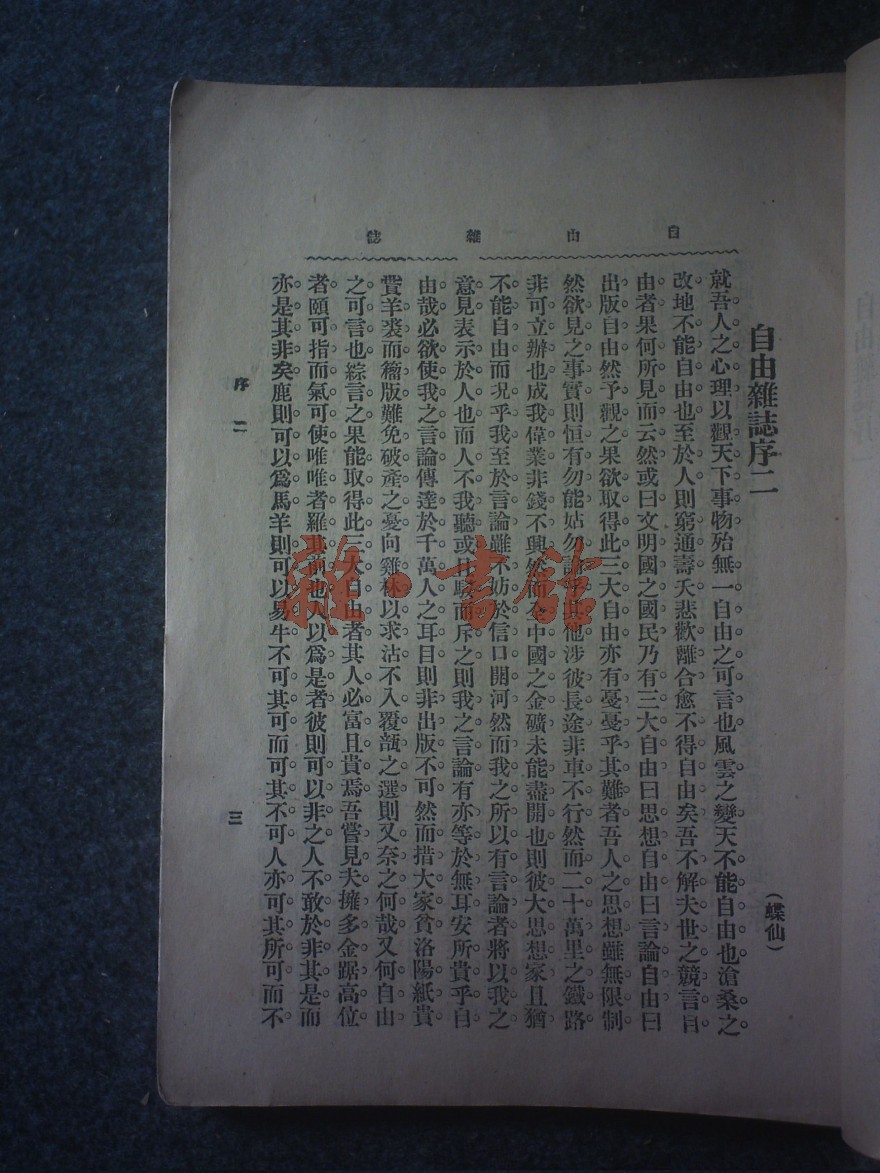 自由雜誌
自由雜誌序二
(蝶仙)
就吾人之心理以觀天下事物殆無一自由之可言也風雲之變天不能自由也滄桑之
改地不能自由也至於人則窮通壽夭悲歡離合愈不得自由矣吾不解夫世之競言自
由者果何所見而云然或曰文明國之國民乃有三大自由曰思想自由曰言論自由曰
出版自由然予觀之果欲取得此三大自由亦有憂憂乎其難者吾人之思想雖無限制
然欲見之事實則恒有勿能姑勿論乎其他涉彼長途非車不行然而二十萬里之鐵路
非可立辦也成我偉業非錢不興然而全中國之金礦未能盡開也則彼大思想家且猶
不能自由而況乎我至於言論雖不妨於信口開河然而我之所以有言論者將以我之
意見表示於人也而人不我聽或且駭而斥之則我之言論有亦等於無耳安所貴乎自
由哉必欲使我之言論傳達於千萬人之耳目則非出版不可然而措大家貧洛陽紙貴
賣羊裘而鏤版難免破產之憂向雞林以求沽不入覆瓿之選則又奈之何哉又何自由
之可言也綜言之果能取得此三大自由者其人必富且貴焉吾嘗見夫擁多金踞高位
者頤可指而氣可使唯唯者羅其前也人以為是者彼則可以非之人不敢於非其是而
亦是其非矣鹿則可以爲馬羊則可以易牛不可其可而可其不可人亦可其所可而不
序二
三
雜·書館